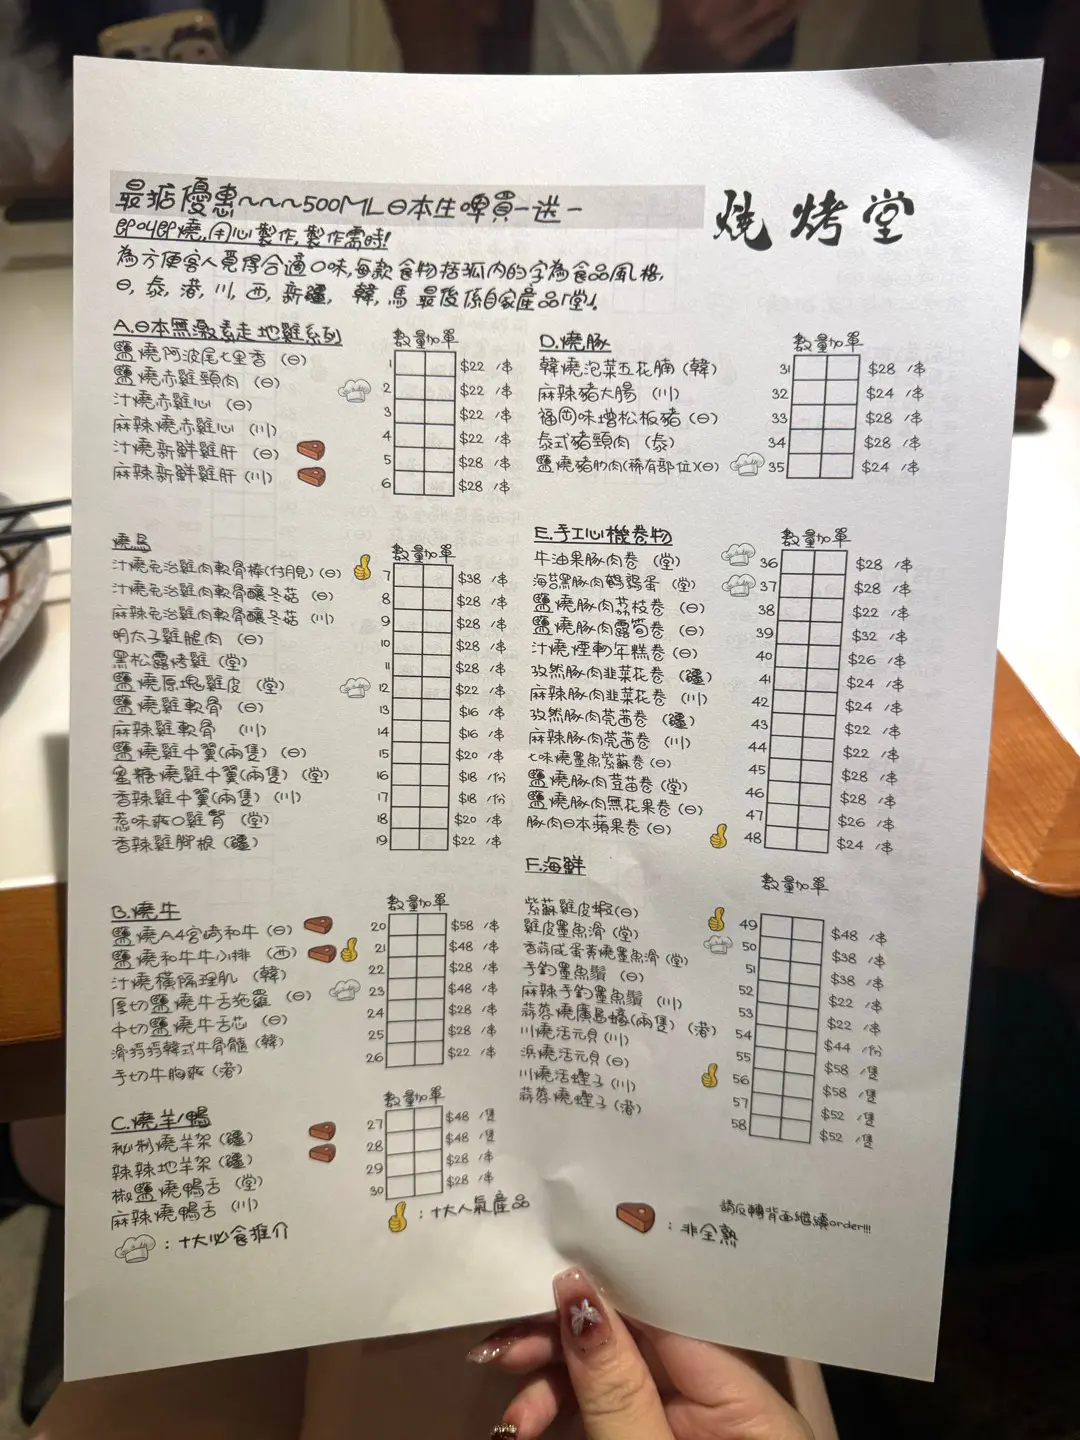 最掂優惠~~~500ML日本生啤買一送一
燒烤堂
即叫即燒,用心製作,製作需時!
為方便客人覓得合適口味,每款食物括弧內的字為食品風格,
日,泰,港,川,西,新疆,韓,馬 最後係自家產品「堂」
A.日本無激素走地雞系列 數量加單
鹽燒阿波尾七里香 (日) 1 $22 /串
鹽燒赤雞頸肉 (日) 2 $22 /串
汁燒赤雞心 (日) 3 $22 /串
麻辣燒赤雞心 (川) 4 $22 /串
汁燒新鮮雞肝 (日) 5 $28 /串
麻辣新鮮雞肝 (川) 6 $28 /串
燒鳥 數量加單
汁燒免治雞肉軟骨棒(付月見) (日) 7 $38 /串
汁燒免治雞肉軟骨釀冬菇 (日) 8 $28 /串
麻辣免治雞肉軟骨釀冬菇 (川) 9 $28 /串
明太子雞腿肉 (日) 10 $28 /串
黑松露烤雞 (堂) 11 $28 /串
鹽燒原塊雞皮 (堂) 12 $22 /串
鹽燒雞軟骨 (日) 13 $16 /串
麻辣雞軟骨 (川) 14 $16 /串
鹽燒雞中翼(兩隻) (日) 15 $20 /串
蜜糖燒雞中翼(兩隻) (堂) 16 $18 /份
香辣雞中翼(兩隻) (川) 17 $18 /份
惹味爽口雞腎 (堂) 18 $20 /串
香辣雞腳根 (疆) 19 $22 /串
B.燒牛 數量加單
鹽燒A4宮崎和牛 (日) 20 $58 /串
鹽燒和牛牛小排 (西) 21 $48 /串
汁燒橫隔理肌 (韓) 22 $28 /串
厚切鹽燒牛舌拖羅 (日) 23 $48 /串
中切鹽燒牛舌芯 (日) 24 $28 /串
滑捋捋韓式牛骨髓 (韓) 25 $28 /串
手切牛胸爽 (港) 26 $22 /串
C.燒羊/鴨 數量加單
秘制燒羊架 (疆) 27 $48 /隻
辣辣地羊架 (疆) 28 $48 /隻
椒鹽燒鴨舌 (堂) 29 $28 /串
麻辣燒鴨舌 (川) 30 $28 /串
:十大必食推介
:十大人氣產品
D.燒豚 數量加單
韓燒泡菜五花腩 (韓) 31 $28 /串
麻辣豬大腸 (川) 32 $24 /串
福岡味增松板豬 (日) 33 $28 /串
泰式豬頸肉 (泰) 34 $28 /串
鹽燒豬肋肉(稀有部位)(日) 35 $24 /串
E.手工心機卷物 數量加單
牛油果豚肉卷 (堂) 36 $28 /串
海苔黑豚肉鵪鶉蛋 (堂) 37 $28 /串
鹽燒豚肉荔枝卷 (日) 38 $22 /串
鹽燒豚肉露筍卷 (日) 39 $32 /串
汁燒煙肉年糕卷 (日) 40 $26 /串
孜然豚肉韭菜花卷 (疆) 41 $24 /串
麻辣豚肉韭菜花卷 (川) 42 $24 /串
孜然豚肉芫茜卷 (疆) 43 $22 /串
麻辣豚肉芫茜卷 (川) 44 $22 /串
七味燒墨魚紫蘇卷 (日) 45 $28 /串
鹽燒豚肉荳苗卷 (堂) 46 $28 /串
鹽燒豚肉無花果卷 (日) 47 $26 /串
豚肉日本蘋果卷 (日) 48 $24 /串
F.海鮮 數量加單
紫蘇雞皮蝦 (日) 49 $48 /串
雞皮墨魚滑 (堂) 50 $38 /串
香蒜咸蛋黃燒墨魚滑 (堂) 51 $38 /串
手釣墨魚鬚 (日) 52 $22 /串
麻辣手釣墨魚鬚 (川) 53 $22 /串
蒜蓉燒廣島蠔(兩隻) (港) 54 $44 /份
川燒活元貝 (川) 55 $58 /隻
浜燒活元貝 (日) 56 $58 /隻
川燒活蟶子 (川) 57 $52 /隻
蒜蓉燒蟶子 (港) 58 $52 /隻
:非全熟
請反轉背面繼續order!!!